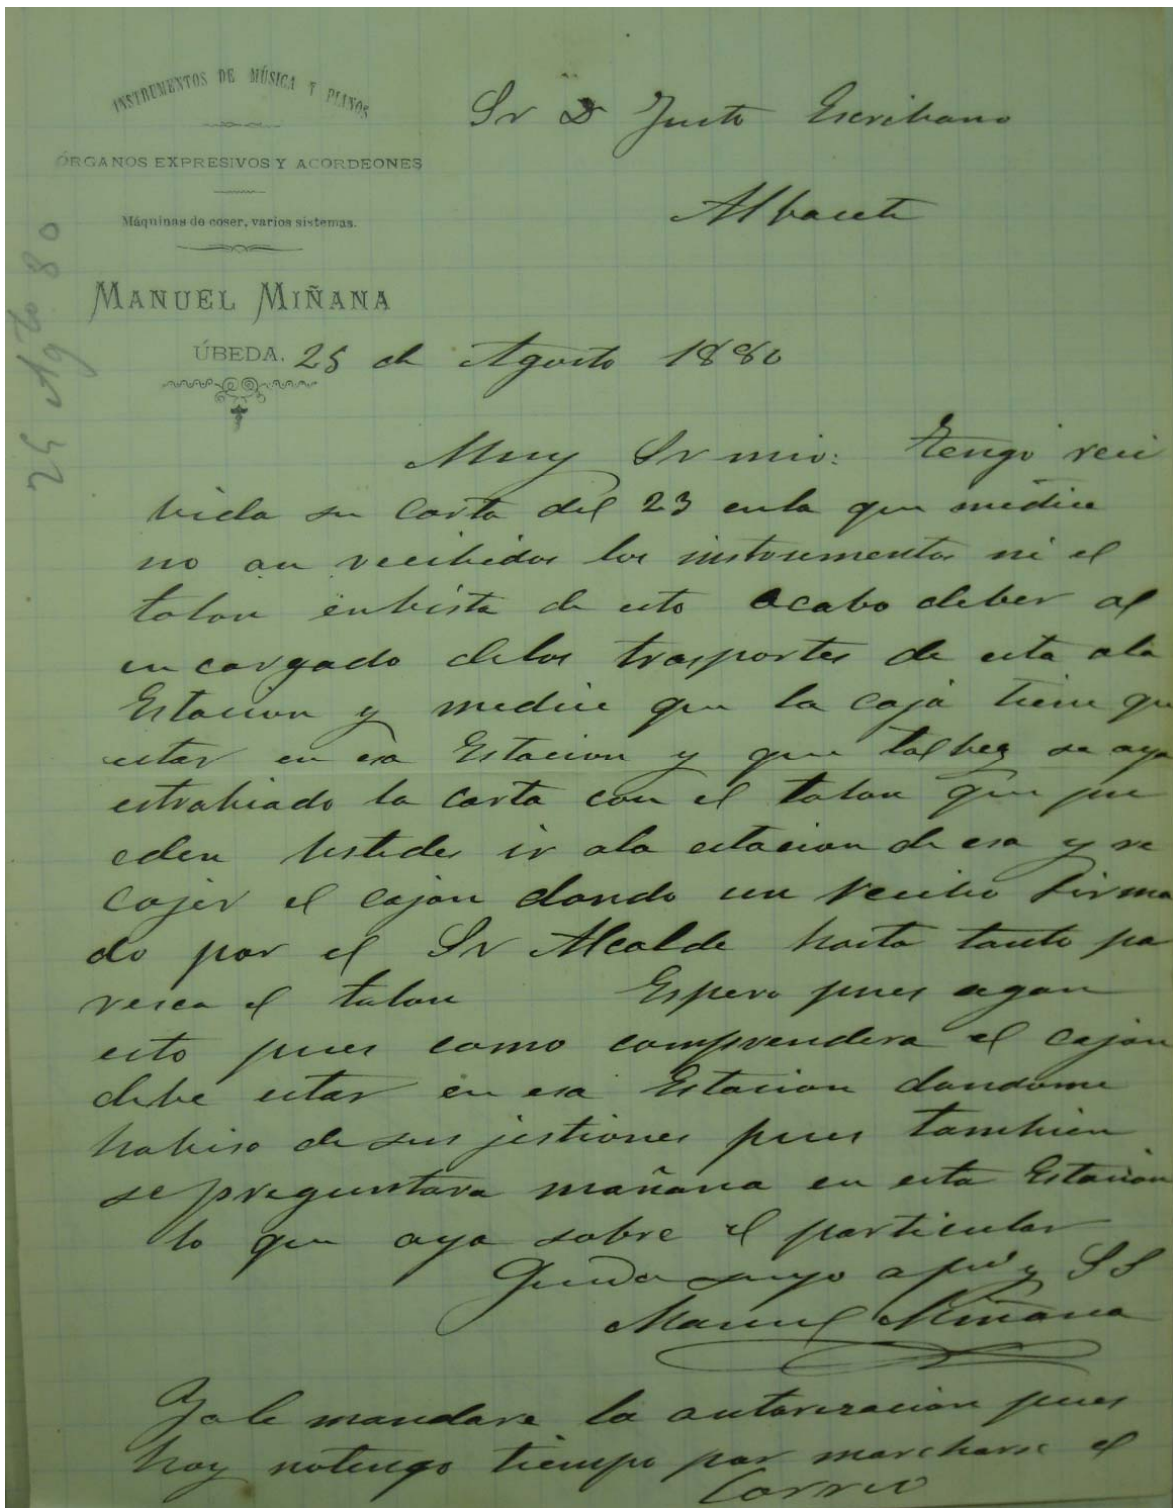 INSTRUMENTOS DE MÚSICA Y PIANOS
ÓRGANOS EXPRESIVOS Y ACORDEONES
Máquinas de coser, varios sistemas.
MANUEL MIÑANA
ÚBEDA. 25 de Agosto 1880
25 Agto 80
Sr D Justo Escribano
Albacete
Muy Sr mio: tengo reci
bida su carta del 23 enla que medice
no an recibidos los instrumentos ni el
talon enbista de esto acabo deber al
encargado delos trasportes de esta ala
Estacion y medice que la caja tiene que
estar en esa Estacion y que talbez se aya
estrabiado la carta con el talon que pu
eden Ustedes ir ala estacion de esa y re
cojer el cajon dando un recibo firma
do por el Sr Alcalde hasta tanto pa
resca el talon Espero pues agan
esto pues como comprendera el cajon
debe estar en esa Estacion dandome
habiso de sus jestiones pues tambien
se preguntara mañana en esta Estacion
lo que aya sobre el particular
Queda suyo y SS
Manuel Miñana
Yale mandare la autorizacion pues
hoy notengo tiempo por marcharse el
Correo